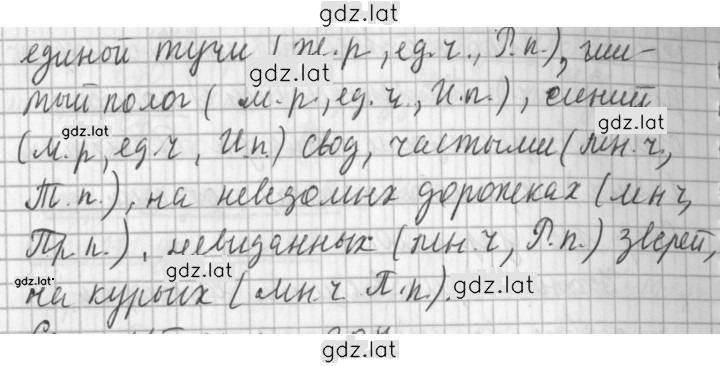 gdz.lat
единой тучи (ж.р, ед.ч., Р.п.), ши-
gdz.lat
тый полог (м.р, ед.ч., И.п.), синий
gdz.lat
gdz.lat
(м.р, ед.ч, И.п.) свод, частыми (мн.ч,
Т.п.), на неведомых дорожках (мн ч,
Пр.п.), невиданных (мн.ч, Р.п.) зверей,
gdz.lat
gdz.lat
gdz.lat
на курьих (мн ч П.п.).
gdz.lat